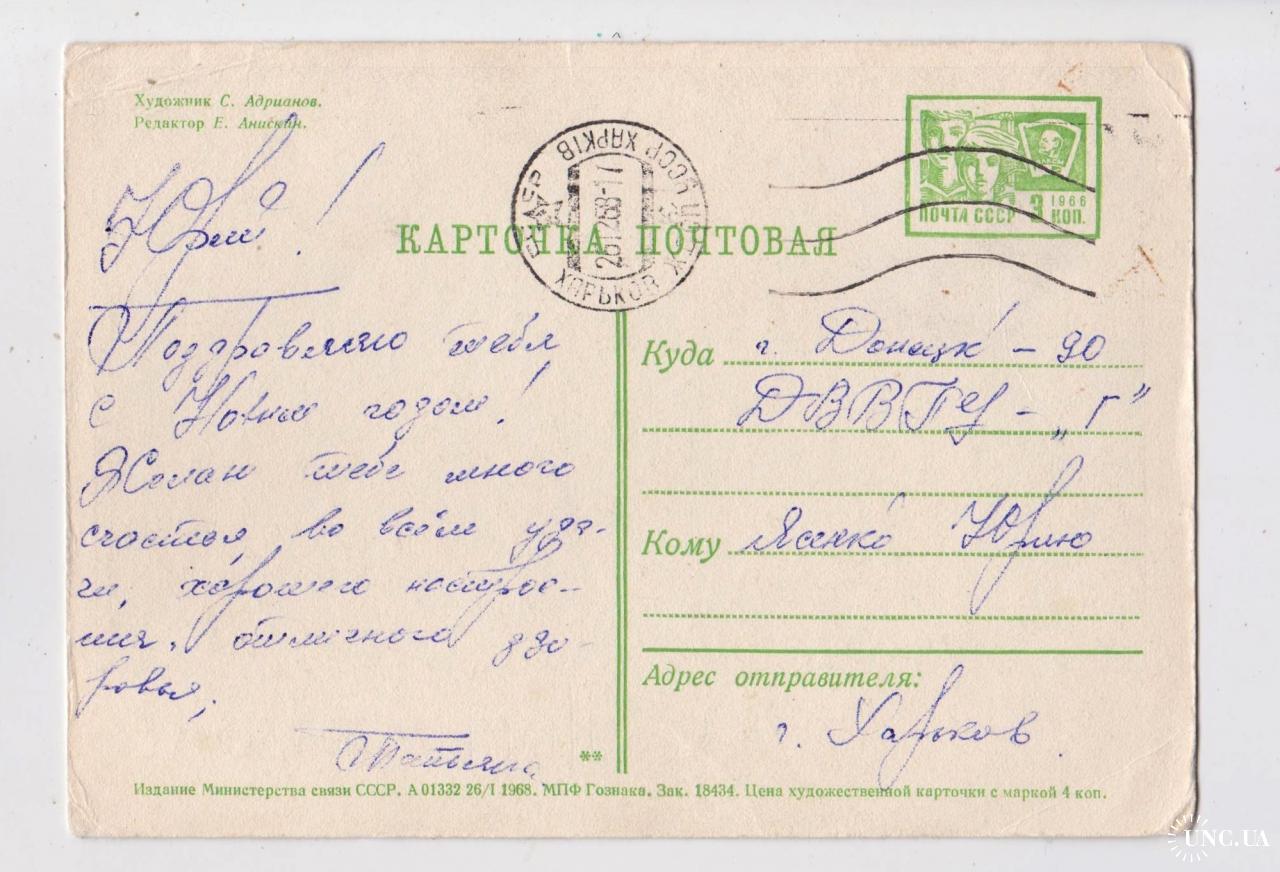 Художник С. Адрианов.
Редактор Е. Анискин.
КАРТОЧКА ПОЧТОВАЯ
ХАРЬКОВ
УССР ХАРКІВ
261268-17
ВЛКСМ
1966
ПОЧТА СССР 3 КОП.
Юрий!
Поздравляю тебя
с Новым годом!
Желаю тебе много
счастья, во всём уда-
чи, хорошего настрое-
ния, отличного здо-
ровья,
Татьяна
Куда г. Донецк - 90
ДВВПУ - „Г”
Кому Юрию
Адрес отправителя:
г. Харьков.
**
Издание Министерства связи СССР. А 01332 26/I 1968. МПФ Гознака. Зак. 18434. Цена художественной карточки с маркой 4 коп.
UNC.UA